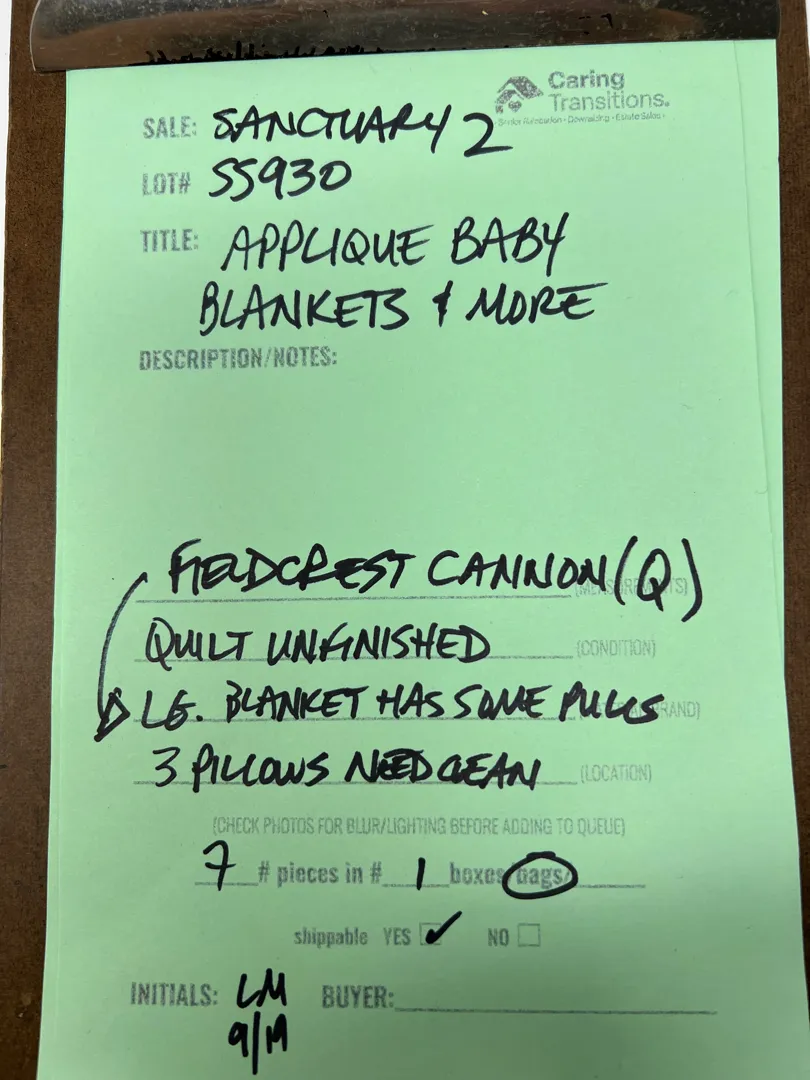 Caring
Transitions.
Senior Relocation • Downsizing • Estate Sales
SALE: SANCTUARY 2
LOT# SS930
TITLE: APPLIQUE BABY
BLANKETS & MORE
DESCRIPTION/NOTES:
FIELDCREST CANNON (Q)
(MEASUREMENTS)
QUILT UNFINISHED (CONDITION)
LG. BLANKET HAS SOME PULLS
3 PILLOWS NEED CLEAN (LOCATION)
(CHECK PHOTOS FOR BLUR/LIGHTING BEFORE ADDING TO QUEUE)
7 # pieces in # 1 boxes/bags/
shippable YES ✓ NO
INITIALS: LM BUYER:
9/19